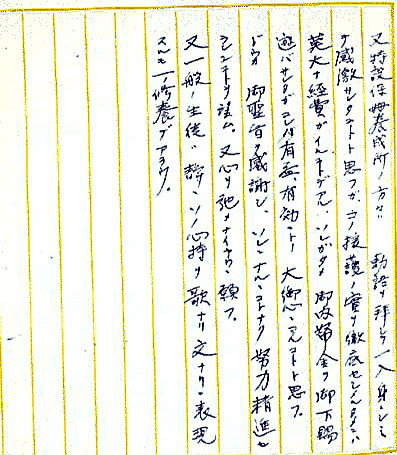 又特設保姆養成所ノ方々ハ 勅語ヲ拝シテ一入身ニシミ
テ感激サレタコトト思フガ、コノ援護ノ実ヲ徹底セシムルタメニハ
莫大ナ経費ガイルノデアル、ソレガタメ 御内帑金ヲ御下賜
遊バサレタガコレハ有益、有効ニトノ 大御心ニアルコトト思フ。
ドウカ 御聖旨ヲ感謝シ、ソレニナルコトナク努力精進セ
ンコトヲ望ム。又心ヲ弛メナイヤウ願フ。
又一般ノ生徒ハ静ニソノ心持ヲ歌ナリ文ナリニ表現
スルモ一ノ修養デアラウ。